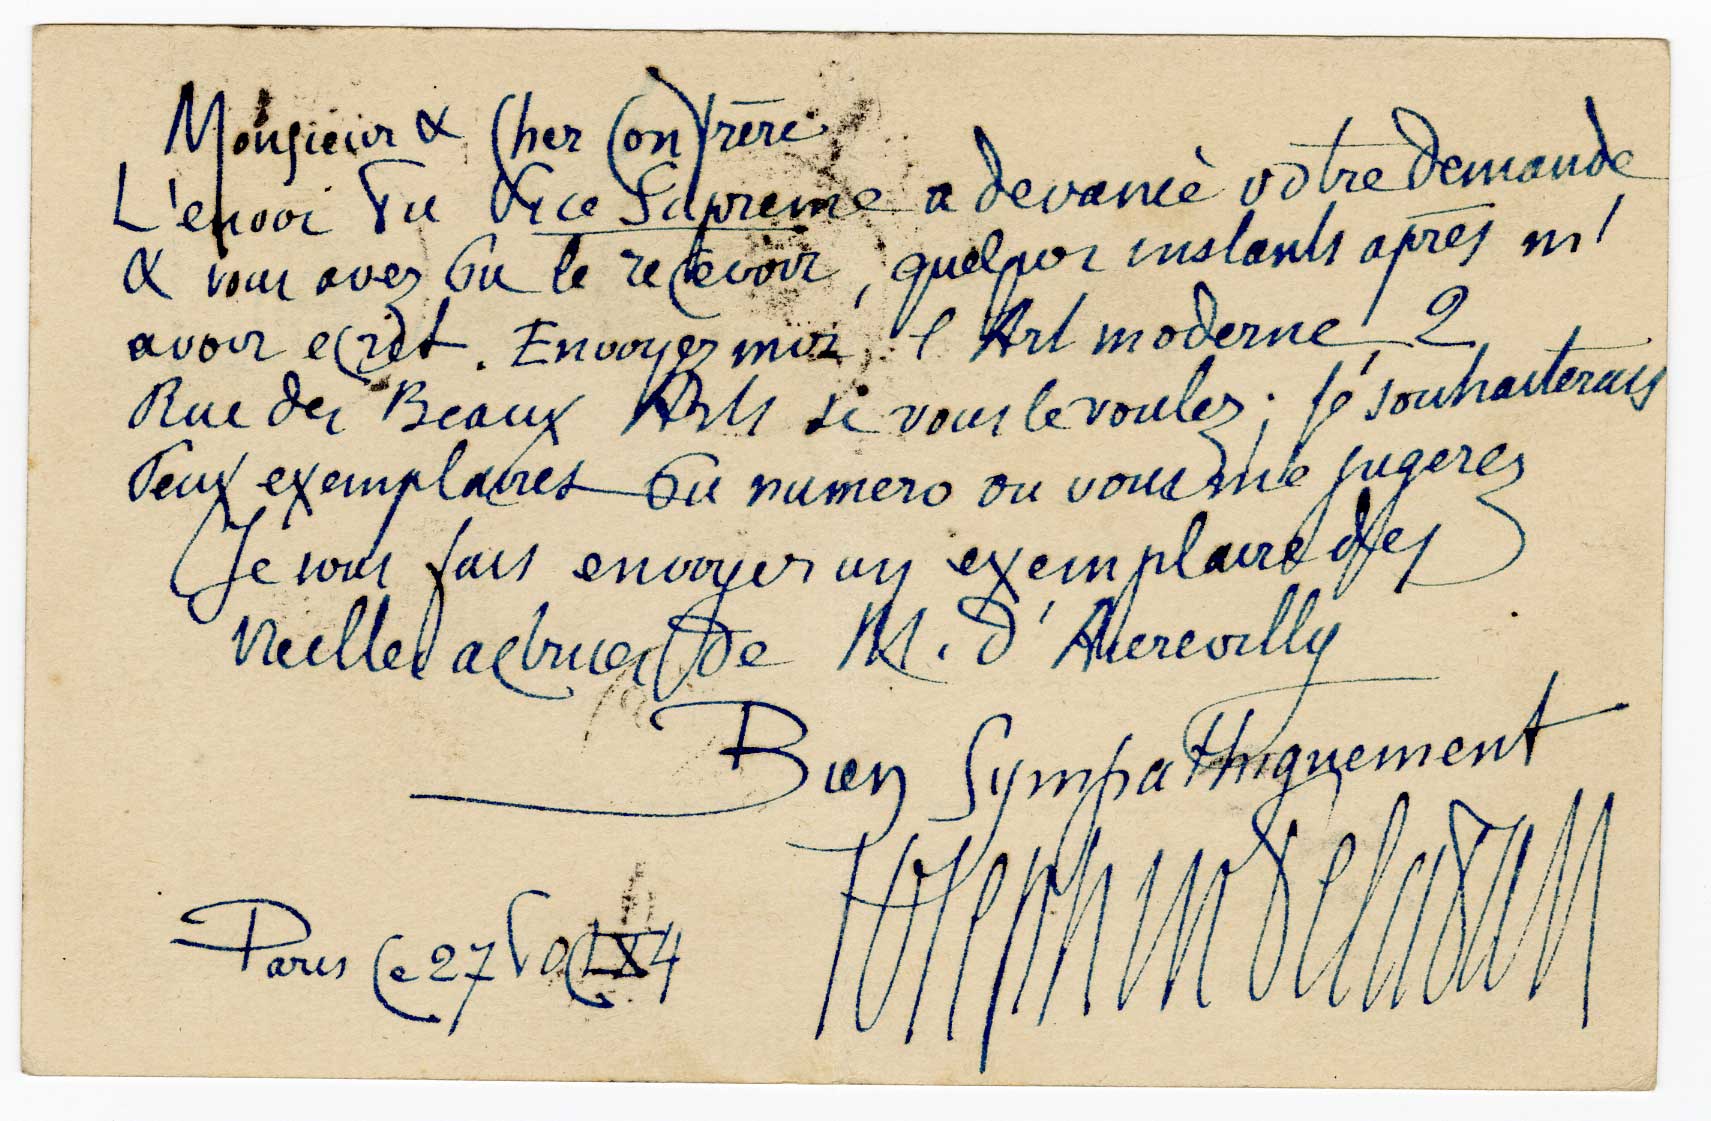 Monsieur & Cher Confrère
L'envoi du Vice Suprême a devancé votre demande
& vous avez du le recevoir, quelques instants après m'
avoir ecrit. Envoyez moi, l'Art moderne, 2
Rue des Beaux Arts si vous le voulez; je souhaiterais
deux exemplaires du numero ou vous me jugerez
Je vous fais envoyer un exemplaire des
Vieilles actrices de M. d'Aurevilly
Bien Sympathiquement
Josephin Peladan
Paris Ce 27